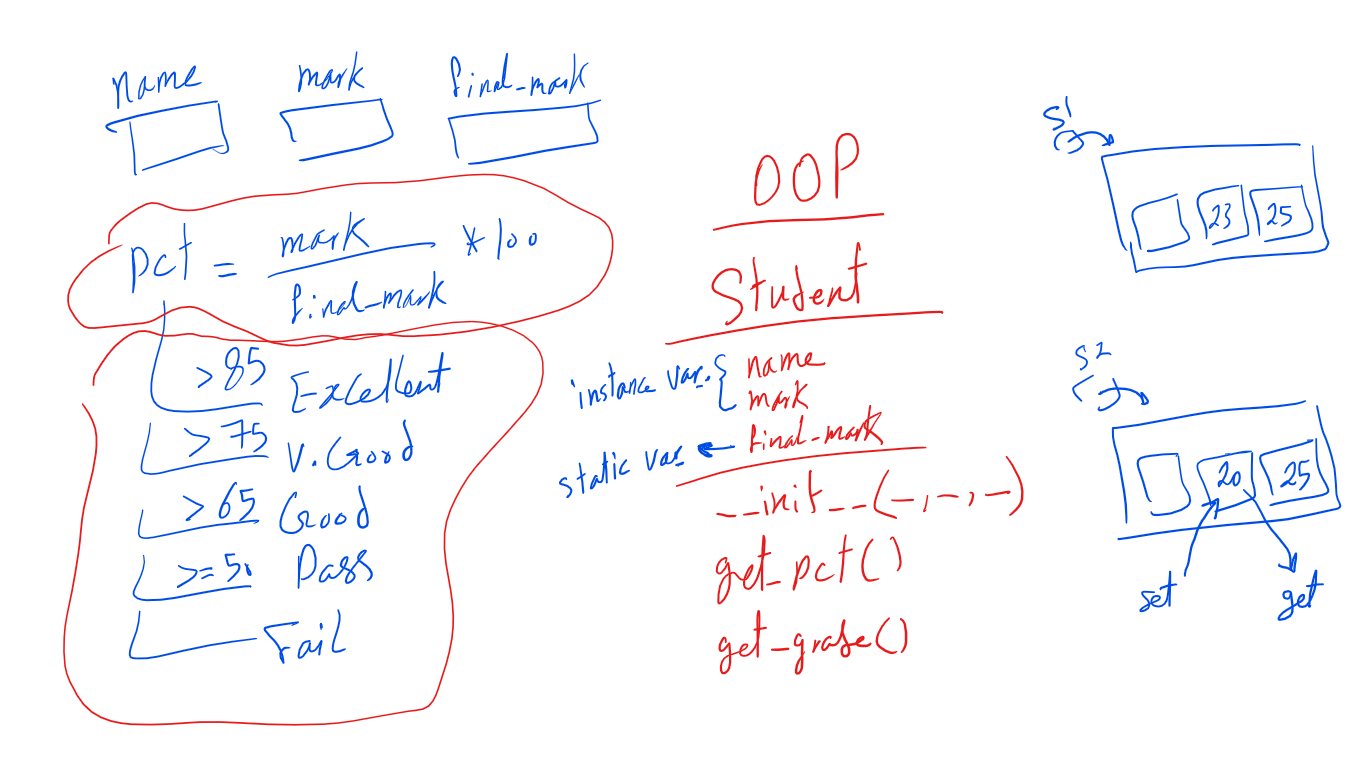 name mark final_mark
pct = mark / final_mark * 100
>85 Excellent
>75 V.Good
>65 Good
>=50 Pass
Fail
OOP
Student
instance var. { name
mark
static var ← final_mark
__init__(-,-,-)
get_pct()
get_grade()
S1
23 25
S2
20 25
set get